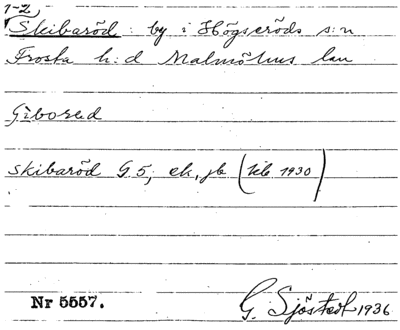 1-2
Skibaröd : by i Högseröds s:n
Frosta h:d Malmöhus län
Gibored
skibaröd G. 5, ek, jb (Kb 1930)
Nr 5557. G. Sjöstedt 1936